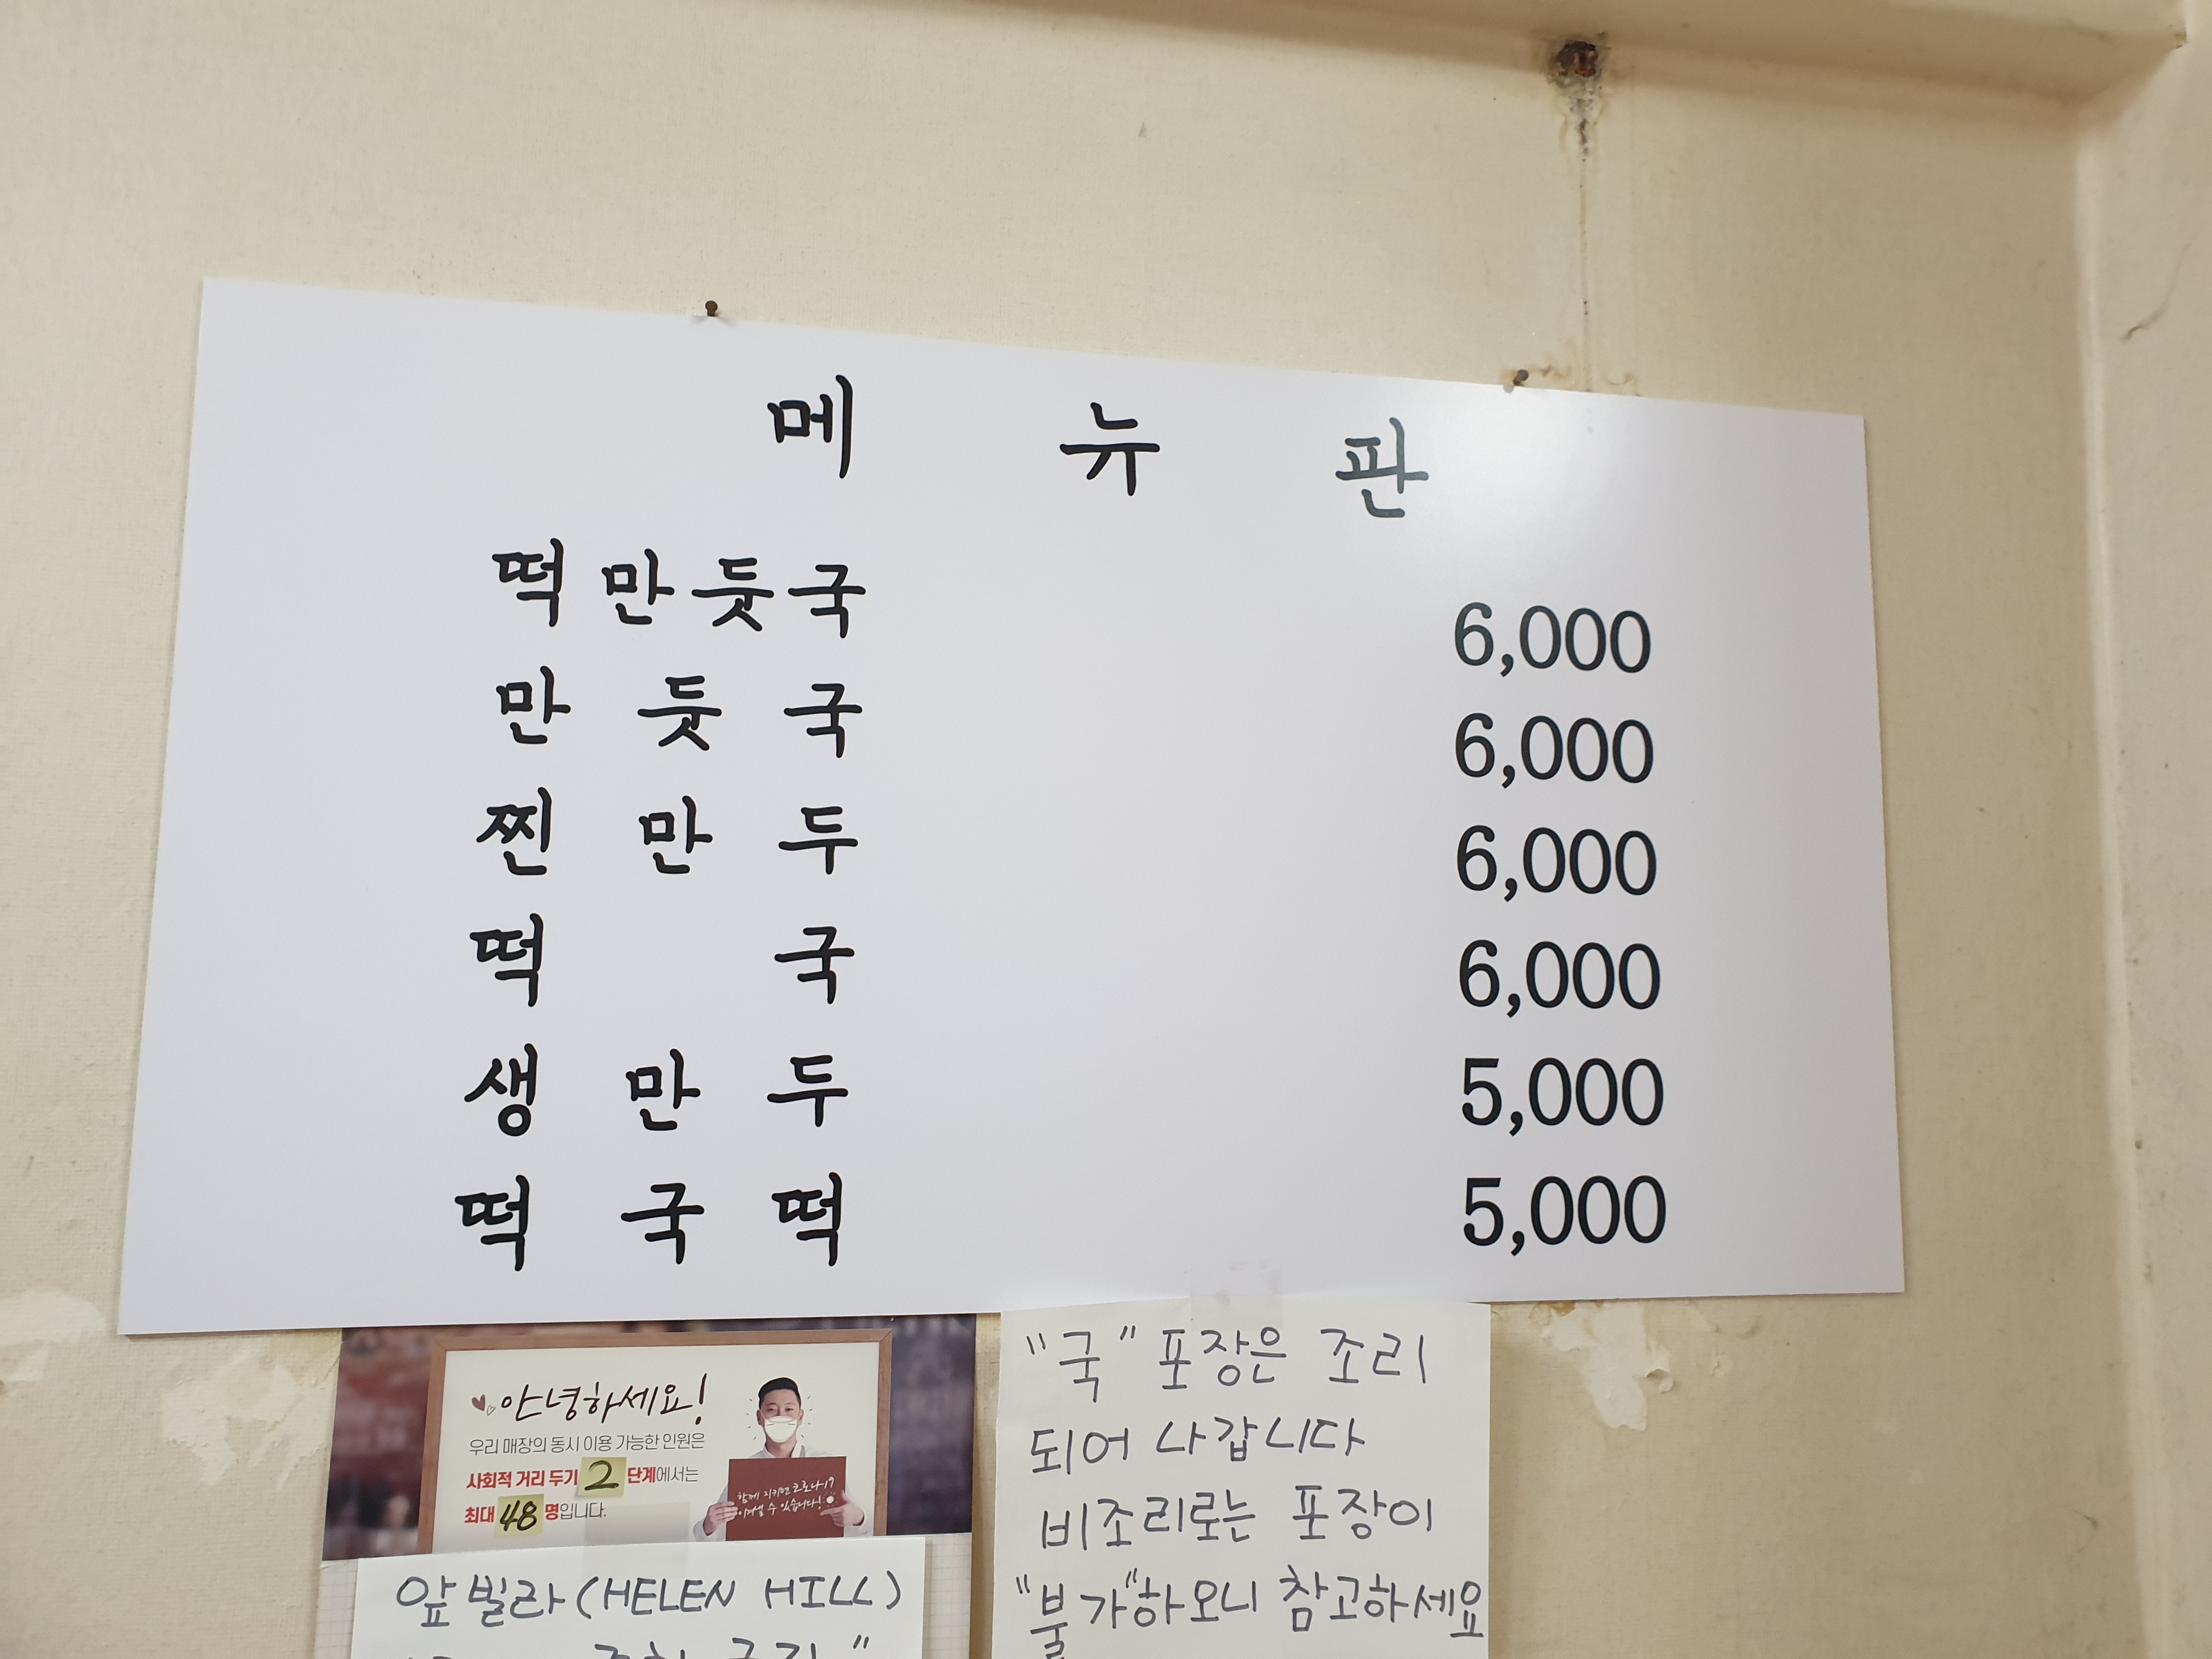 메 뉴 판
떡 만 듯 국 6,000
만 듯 국 6,000
찐 만 두 6,000
떡 국 6,000
생 만 두 5,000
떡 국 떡 5,000
안녕하세요!
우리 매장의 동시 이용 가능한 인원은
사회적 거리 두기 2 단계에서는
최대 48 명입니다.
함께 지키면 코로나19
이겨낼 수 있습니다!
앞 빌라 (HELEN HILL)
"국" 포장은 조리
되어 나갑니다
비조리로는 포장이
"불가"하오니 참고하세요